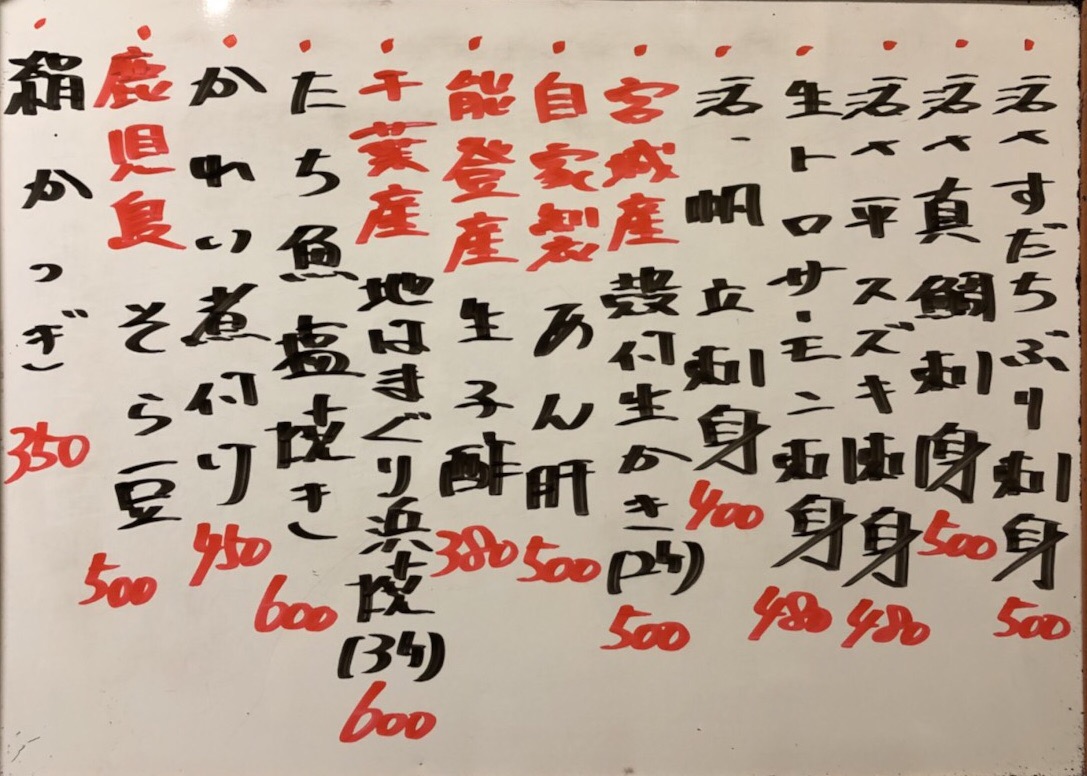 活〆すだちぶり刺身 500
活〆真鯛刺身 500
活〆平スズキ刺身 480
生トロサーモン刺身 480
活、帆立刺身 400
宮城産 殻付生かき(2ケ) 500
自家製 あん肝 500
能登産 生子酢 380
千葉産 地はまぐり浜焼(3ケ) 600
たち魚塩焼き 600
かれい煮付け 450
鹿児島 そら豆 500
絹かつぎ 350